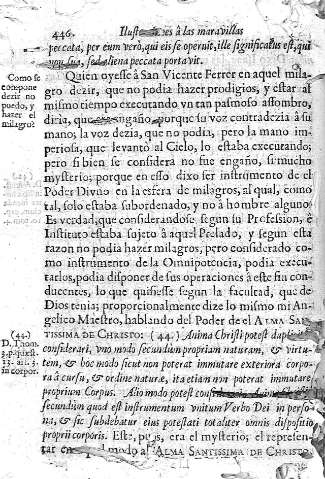 446. Ilustraciones à las maravillas
peccata, per eum verò, qui eis se operuit, ille significatus est, qui
non sua, sed aliena peccata portavit.
Como se
compone
dezir no
puedo, y
hazer el
milagro?
Quien oyesse à San Vicente Ferrer en aquel mila-
gro dezir, que no podia hazer prodigios, y estar al
mismo tiempo executando vn tan pasmoso assombro,
diria, que engaño, porque su voz contradezia à su
mano; la voz dezia, que no podia, pero la mano im-
periosa, que levantò al Cielo, lo estaba executando;
pero si bien se considera no fue engaño, si mucho
mysterio; porque en esso dixo ser instrumento de el
Poder Divino en la esfera de milagros, al qual, como
tal, solo estaba subordenado, y no à hombre alguno
Es verdad, que considerandose segun su Profession, è
Instituto estaba sujeto à aquel Prelado, y segun esta
razon no podia hazer milagros, pero considerado co-
mo instrumento de la Omnipotencia, podia execu-
tarlos, podia disponer de sus operaciones à este fin con-
ducentes, lo que quisiesse segun la facultad, que de
Dios tenia; proporcionalmente dize lo mismo mi An-
gelico Maestro, hablando del Poder de el ALMA SAN-
TISSIMA DE CHRISTO: (44.) Anima Christi potest dupliciter
(44.)
D. Thom.
3. p.
in corpor.
considerari, vno modo secundum propriam naturam, & virtu-
tem, & hoc modo sicut non poterat immutare exteriora corpo-
ra à cursu, & ordine naturæ, ita etiam non poterat immutare
proprium Corpus. Alio modo potest
secundum quod est instrumentum vnitum Verbo Dei in perso-
na, & sic subdebatur eius potestati totaliter omnis dispositio
proprii corporis. Este, pues, era el mysterio; el represen-
tar en modo al ALMA SANTISSIMA DE CHRISTO